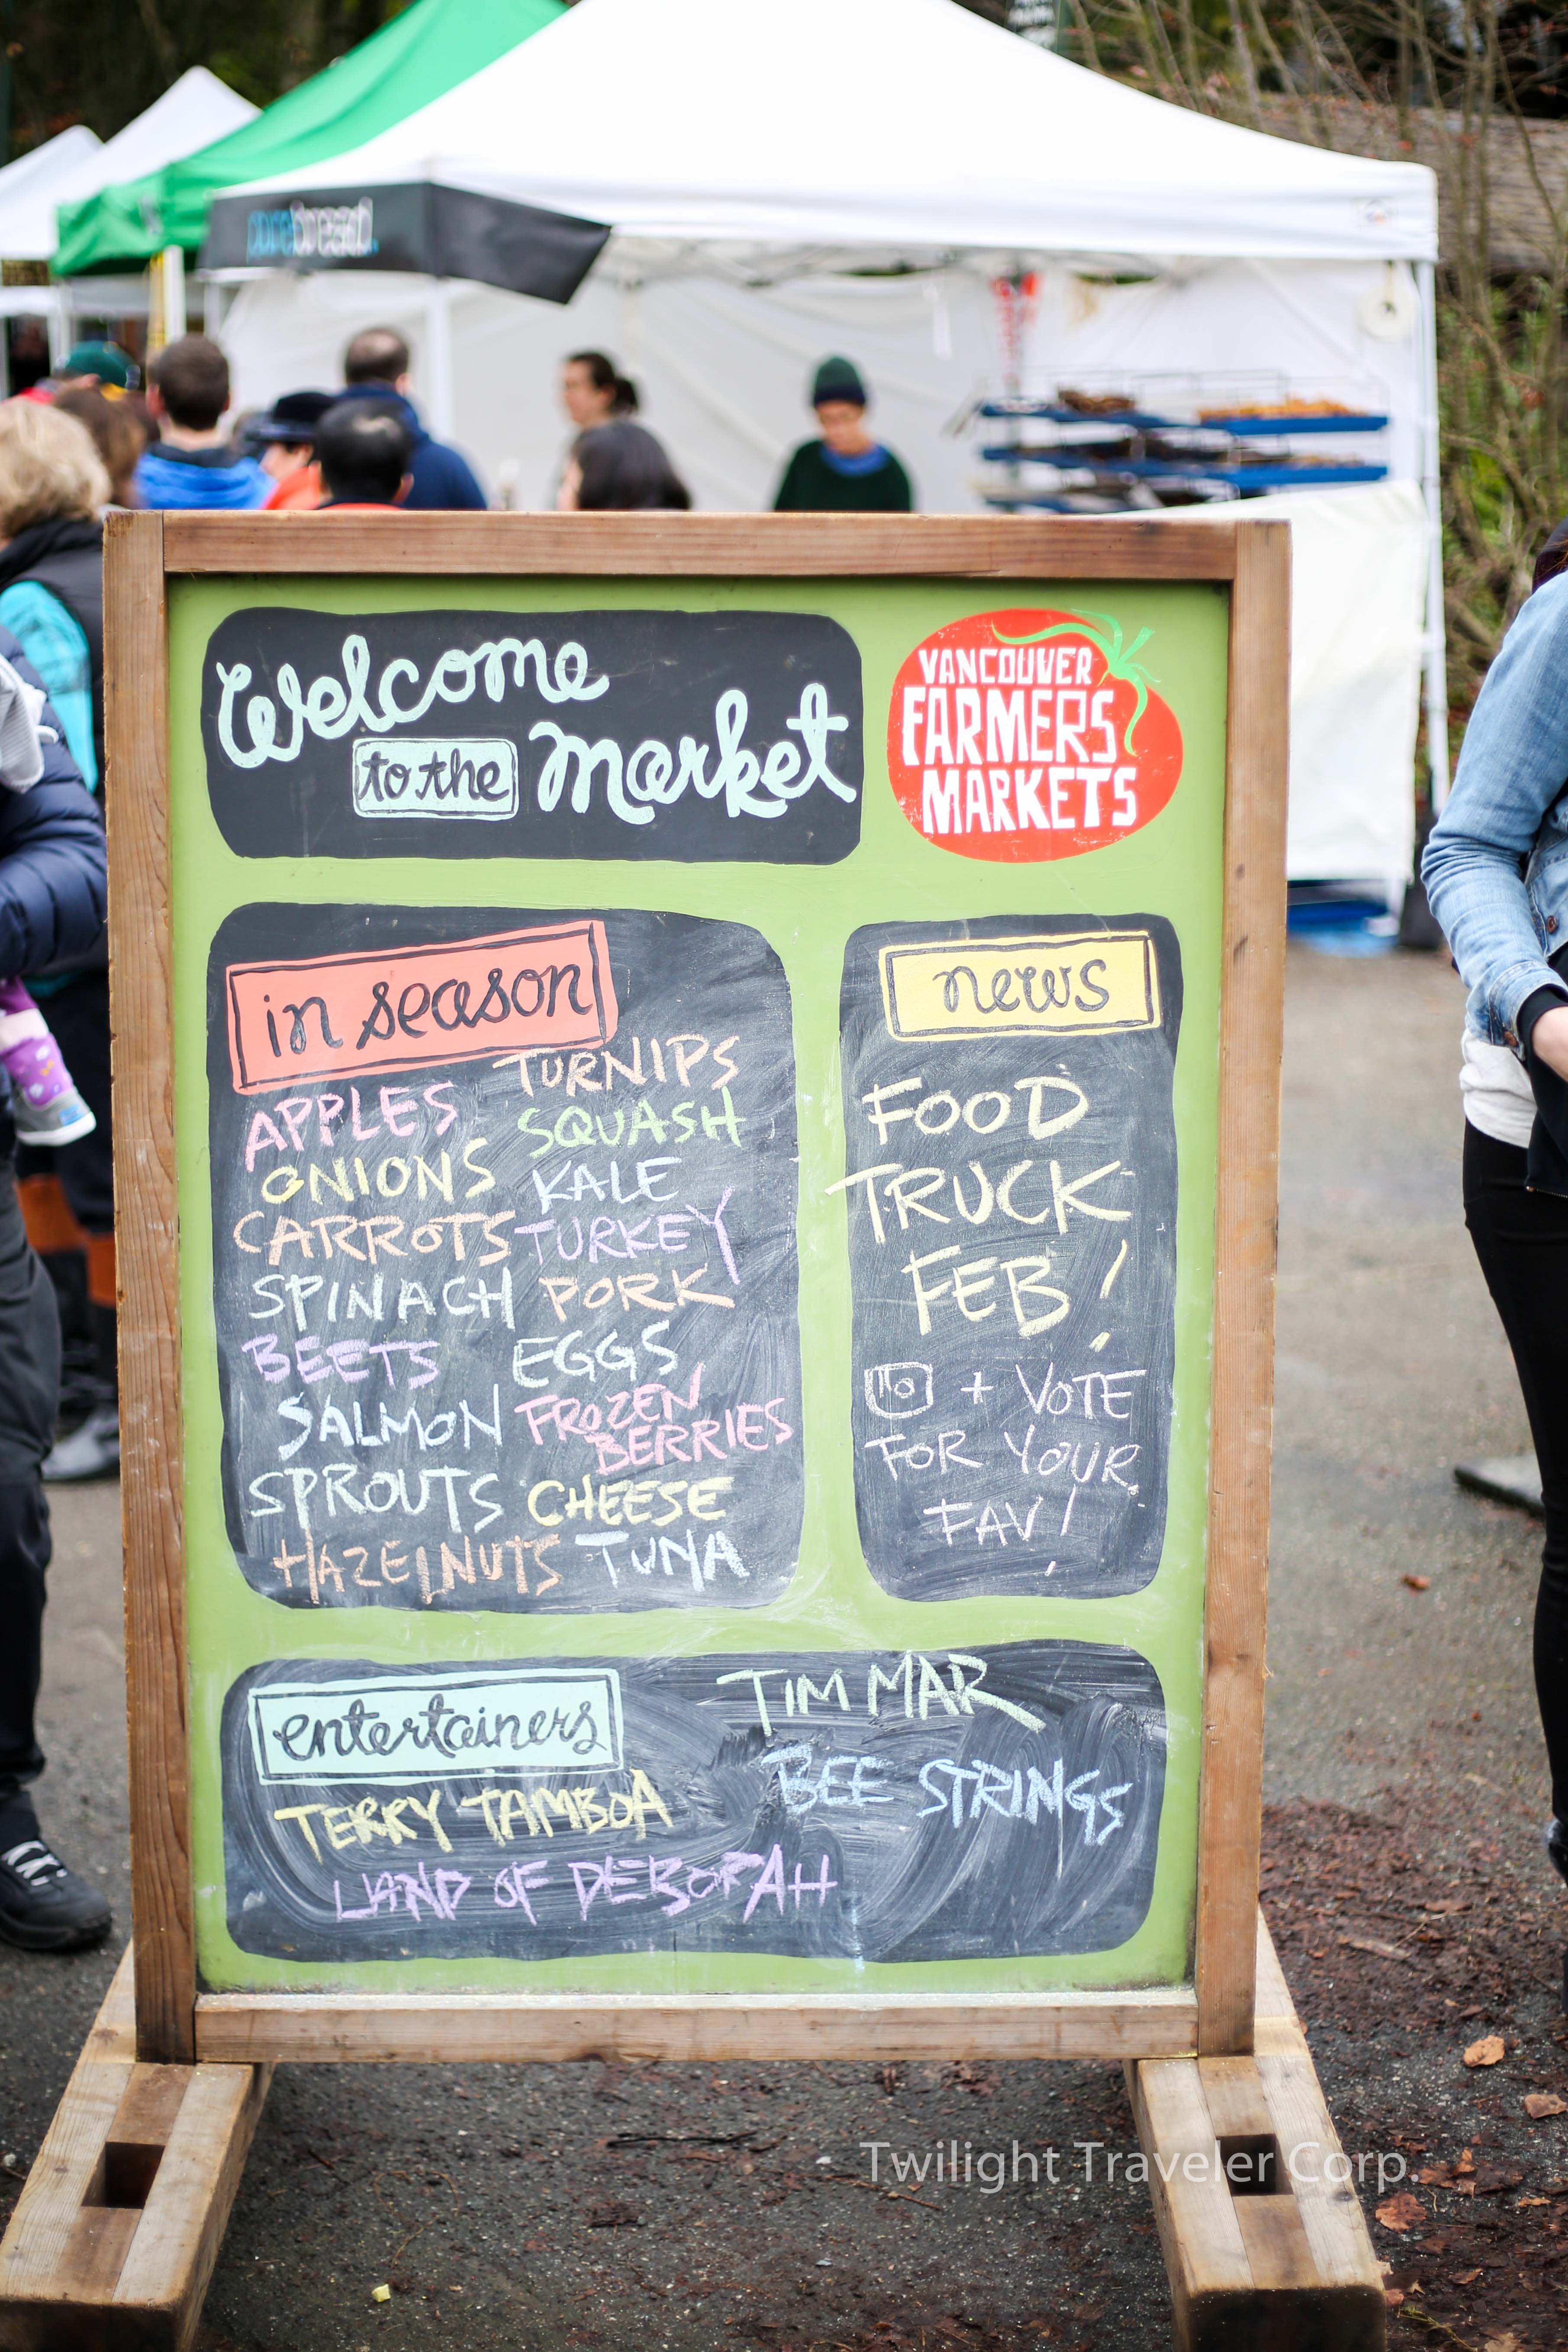 purebread.
Welcome
to the market
VANCOUVER
FARMERS
MARKETS
in season
APPLES
ONIONS
CARROTS
SPINACH
BEETS
SALMON
SPROUTS
HAZELNUTS
TURNIPS
SQUASH
KALE
TURKEY
PORK
EGGS
FROZEN
BERRIES
CHEESE
TUNA
news
FOOD
TRUCK
FEB!
+ VOTE
FOR YOUR
FAV!
entertainers
TIM MAR
BEE STRINGS
TERRY TAMBOA
LAND OF DEBORAH
Twilight Traveler Corp.